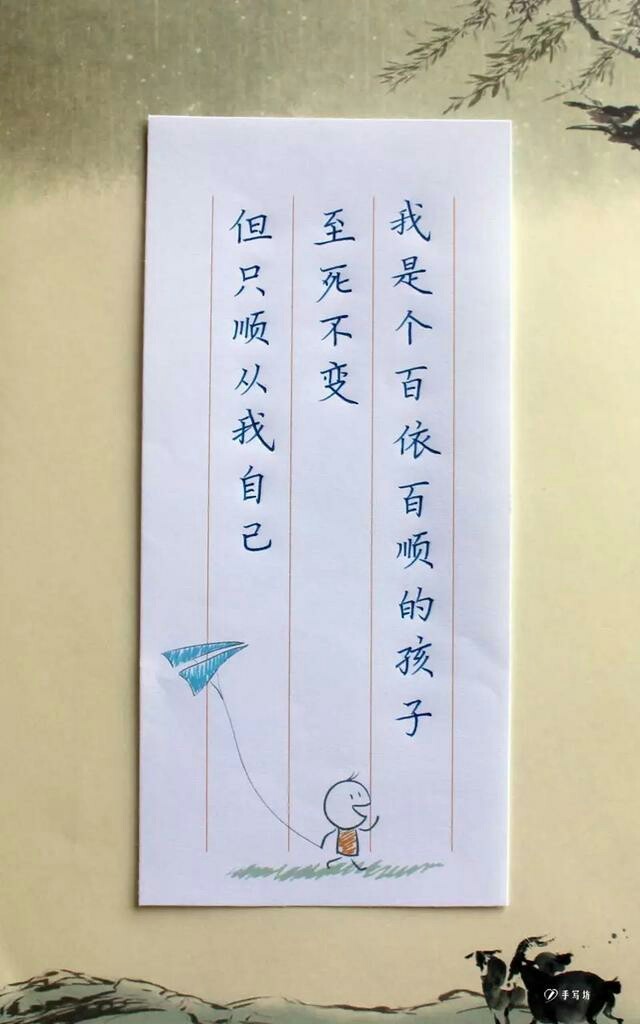 我是个百依百顺的孩子
至死不变
但只顺从我自己
手写坊